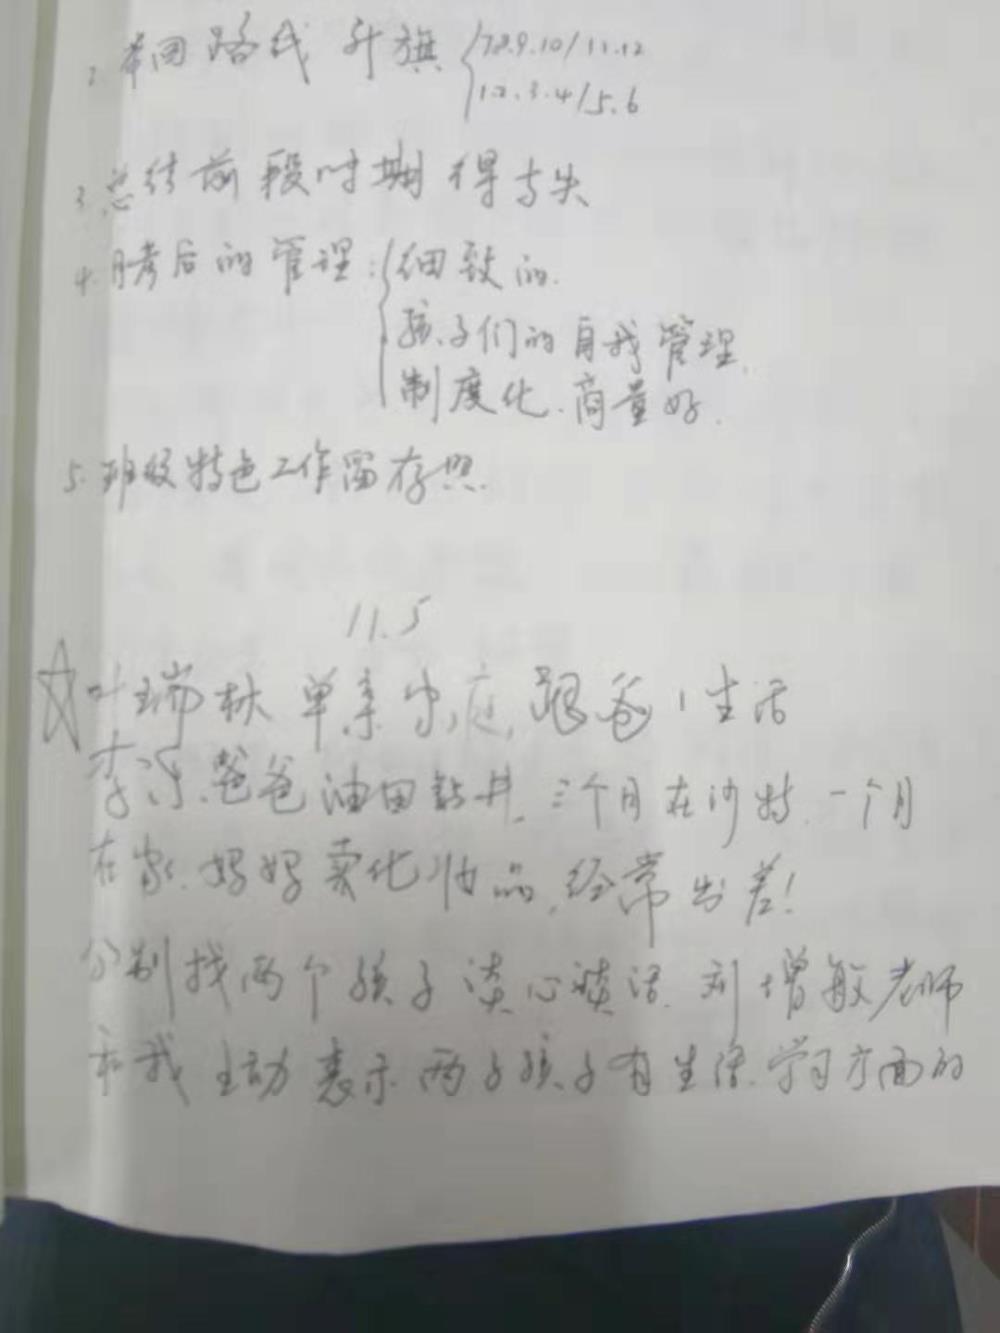 2. 路线 升旗 7.8.9.10/11.12
1.2.3.4/5.6
3. 总结前段时期得与失
4. 月考后的管理: 细致的.
孩子们的自我管理.
制度化.商量好.
5. 班级特色工作留存照.
11.5
叶瑞林 单亲家庭, 跟爸爸生活
李 .爸爸油田钻井. 三个月在沙特. 一个月
在家. 妈妈卖化妆品, 经常出差!
分别找两个孩子谈心谈话. 刘增敏老师
和我主动表示两个孩子有生活.学习方面的